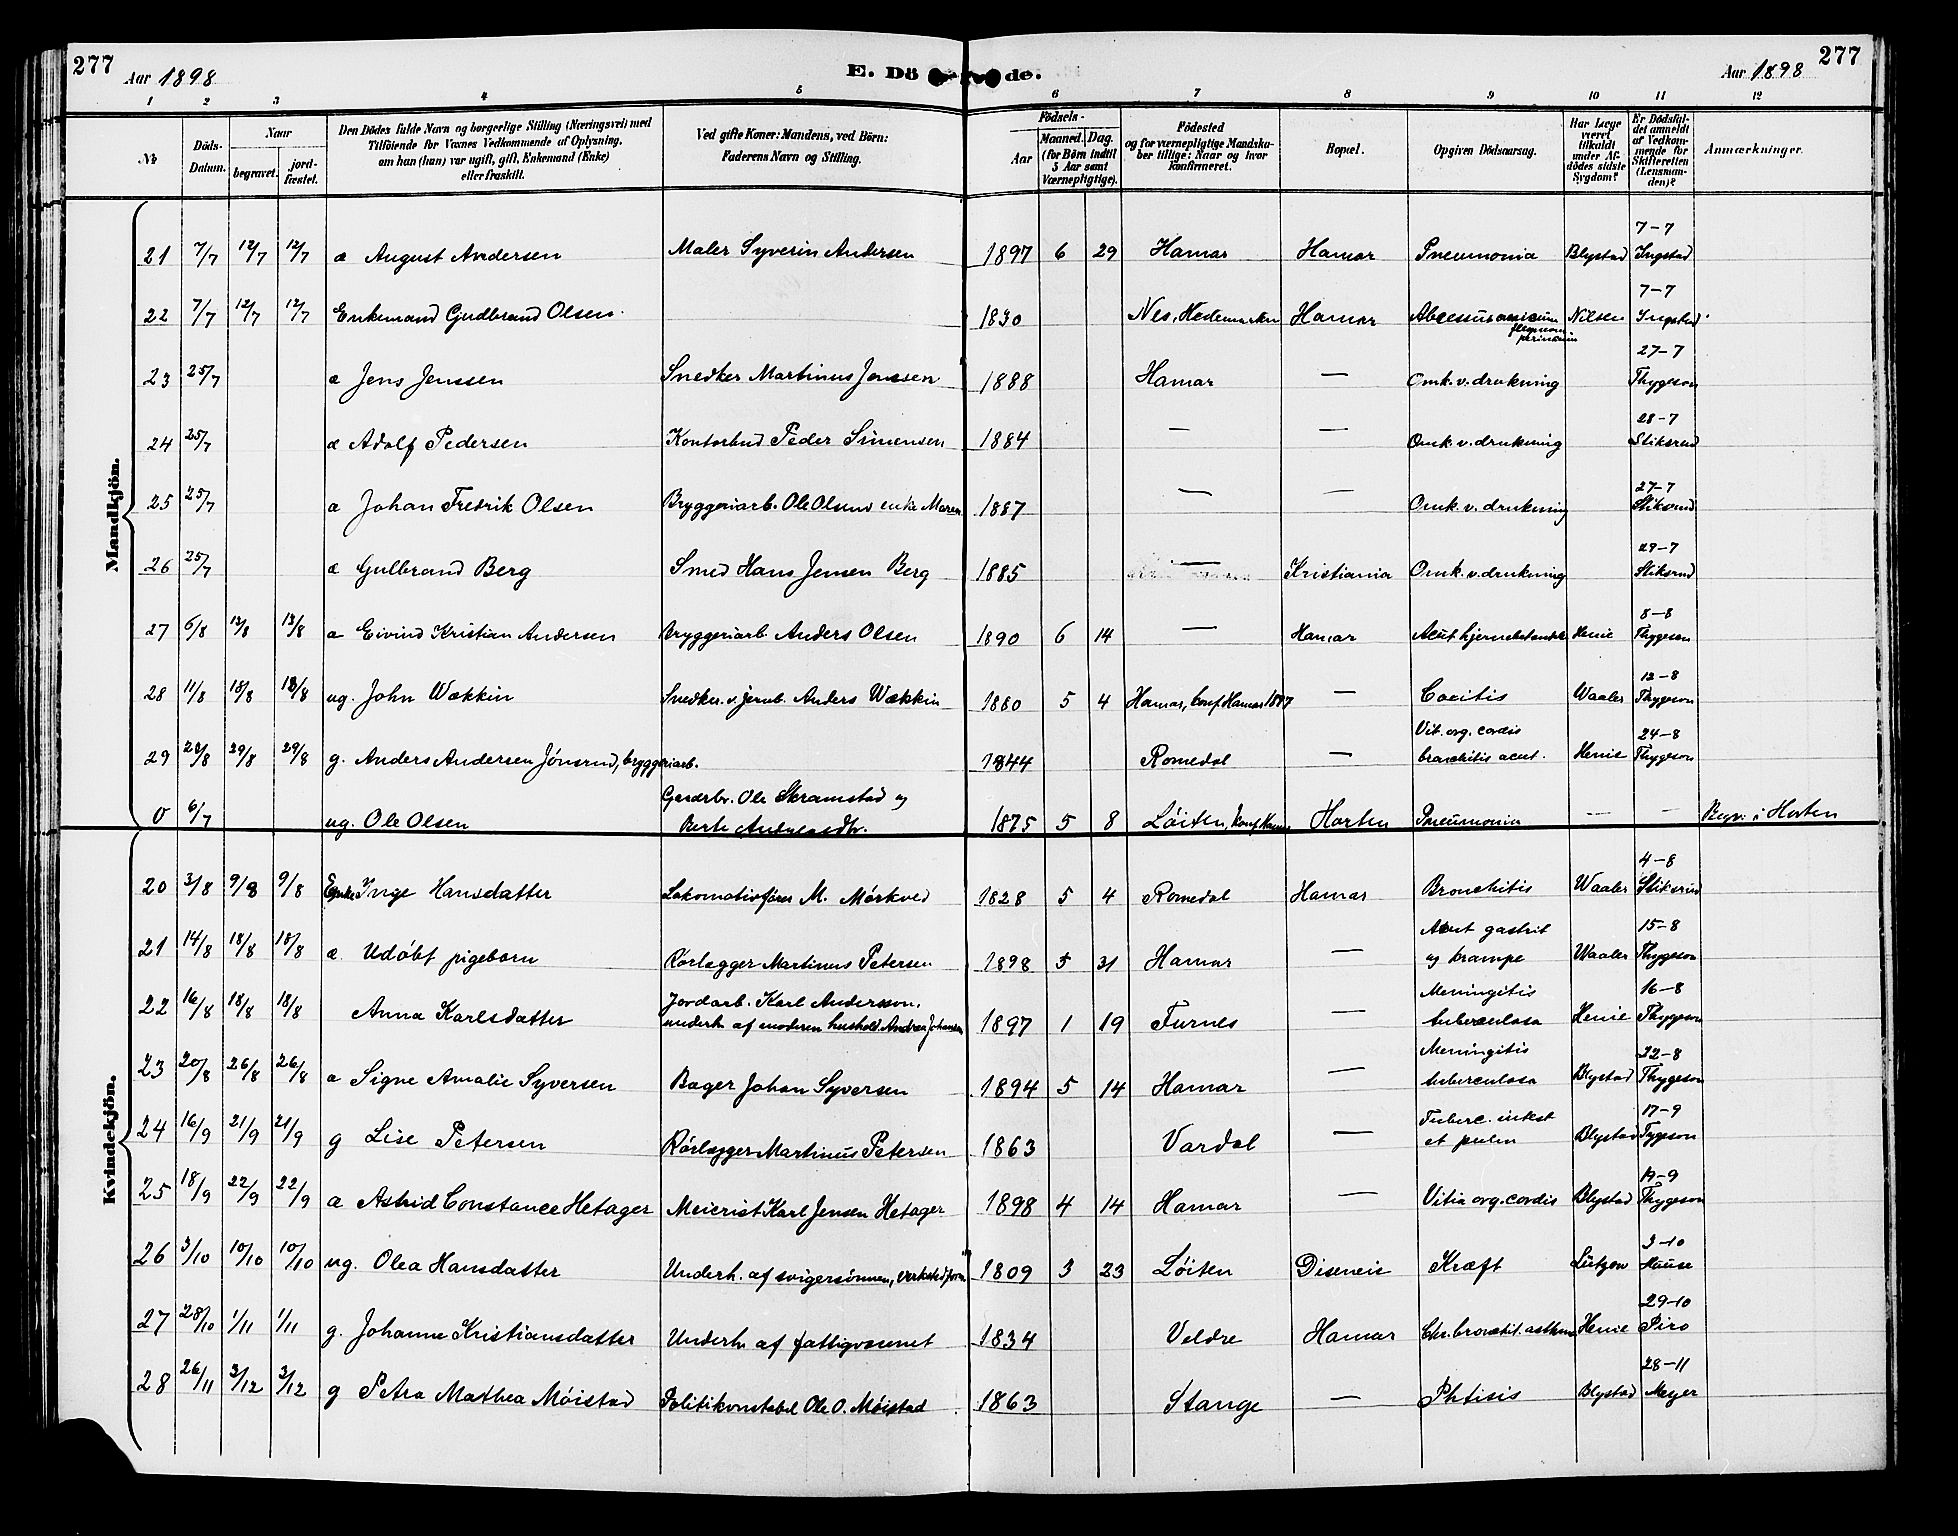 277
Aar 1898
E. Dö
de.
Aar 1898
277
1 2 3 4 5 6 7 8 9 10 11 12
No
Döds-Datum.
Naar
begravet.
jord-fæstet.
Den Dödes fulde Navn og borgerlige Stilling (Næringsvei) med
Tilföiende for Voxnes Vedkommende af Oplysning,
om han (hun) var ugift, gift, Enkemand (Enke)
eller fraskilt.
Ved gifte Koner: Mandens, ved Börn:
Faderens Navn og Stilling.
Födsels-
Aar
Maaned. Dag.
(for Börn indtil
5 Aar samt
Værnepligtige).
Födested
og for værnepligtige Mandska-
ber tillige: Naar og hvor
konfirmeret.
Bopæl.
Opgiven Dödsaarsag.
Har Læge
været
tilkaldt
under Af-
dödes sidste
Sygdom?
Er Dödsfal-
det anmeldt
af Vedkom-
mende for
Skifteretten
(Lensman-
den)?
Anmærkninger.
Mandkjön.
21 7/7 12/7 12/7 æ August Andersen Maler Syverin Andersen 1897 6 29 Hamar Hamar Pneumonia Blystad 7-7 Ingstad
22 7/7 12/7 12/7 Enkemand Gudbrand Olsen. 1830 Nes, Hedemarken Hamar Nilsen 7-7 Ingstad
23 25/7 æ Jens Jenssen Snedker Martinus Jenssen 1888 Hamar — Omk. v. drukning 27-7 Thygeson
24 25/7 æ Adolf Pedersen Kontorbud Peder Simensen 1884 — — Omk. v. drukning 28-7 Stiksrud
25 25/7 æ Johan Fredrik Olsen Bryggeriarb. Ole Olsens enke Maren 1887 — — Omk. v. drukning 27-7 Stiksrud
26 25/7 æ Gulbrand Berg Smed Hans Jensen Berg 1885 — Kristiania Omk. v. drukning 29-7 Stiksrud
27 6/8 13/8 13/8 æ Eivind Kristian Andersen Bryggeriarb. Anders Olsen 1890 6 14 — Hamar Acut hjernebetændelse Henie 8-8 Thygeson
28 11/8 18/8 18/8 ug. John Wækkin Snedker. v. jernb. Anders Wækkin 1880 5 4 Hamar, Conf. Hamar 1897 — Coxitis Waaler 12-8 Thygeson
29 23/8 29/8 29/8 g. Anders Andersen Jönsrud, bryggeriarb. 1844 Romedal — Vit. org. cordis bronchitis acut. Henie 24-8 Thygeson
0 6/7 ug. Ole Olsen Gaardbr. Ole Skramstad og Berte 1875 5 8 Löiten, konf. Hamar Horten Pneumonia — — Begr. i Horten
Kvindekjön.
20 3/8 9/8 9/8 Enke Inge Hansdatter Lokomotivförer M. Mörkved 1828 5 4 Romedal Hamar Bronchitis Waaler 4-8 Stiksrud
21 14/8 18/8 18/8 æ. Udöbt pigebarn Rörlægger Martinus Petersen 1898 5 31 Hamar — Acut gastrit og krampe Waaler 15-8 Thygeson
22 16/8 18/8 18/8 Anna Karlsdatter Jordarb. Karl Anderson, underh. af moderen hushold. Andrea Johansen 1897 1 19 Furnes — Meningitis tuberculosa Henie 16-8 Thygeson
23 20/8 26/8 26/8 æ Signe Amalie Syversen Bager Johan Syversen 1894 5 14 Hamar — Meningitis tuberculosa Blystad 22-8 Thygeson
24 16/9 21/9 21/9 g Lise Petersen Rörlægger Martinus Petersen 1863 Vardal — Tuberc. intest et pulm Blystad 17-9 Tygeson
25 18/9 22/9 22/9 æ Astrid Constance Hetager Meierist Karl Jensen Hetager 1898 4 14 Hamar — Vitia org. cordis Blystad 19-9 Thygeson
26 3/10 10/10 10/10 ug. Olea Hansdatter Underh. af svigersönnen, verkstedform. 1809 3 23 Löiten Diseneis Kræft Lützow 3-10
27 28/10 1/11 1/11 g. Johanne Kristiansdatter Underh. af fattigvæsenet 1834 Veldre Hamar Chr. bronchit. asthma Henie 29-10 Piro
28 26/11 3/12 3/12 g Petra Mathea Möistad Politikonstabel Ole O. Möistad 1863 Stange — Phtisis Blystad 28-11 Meyer